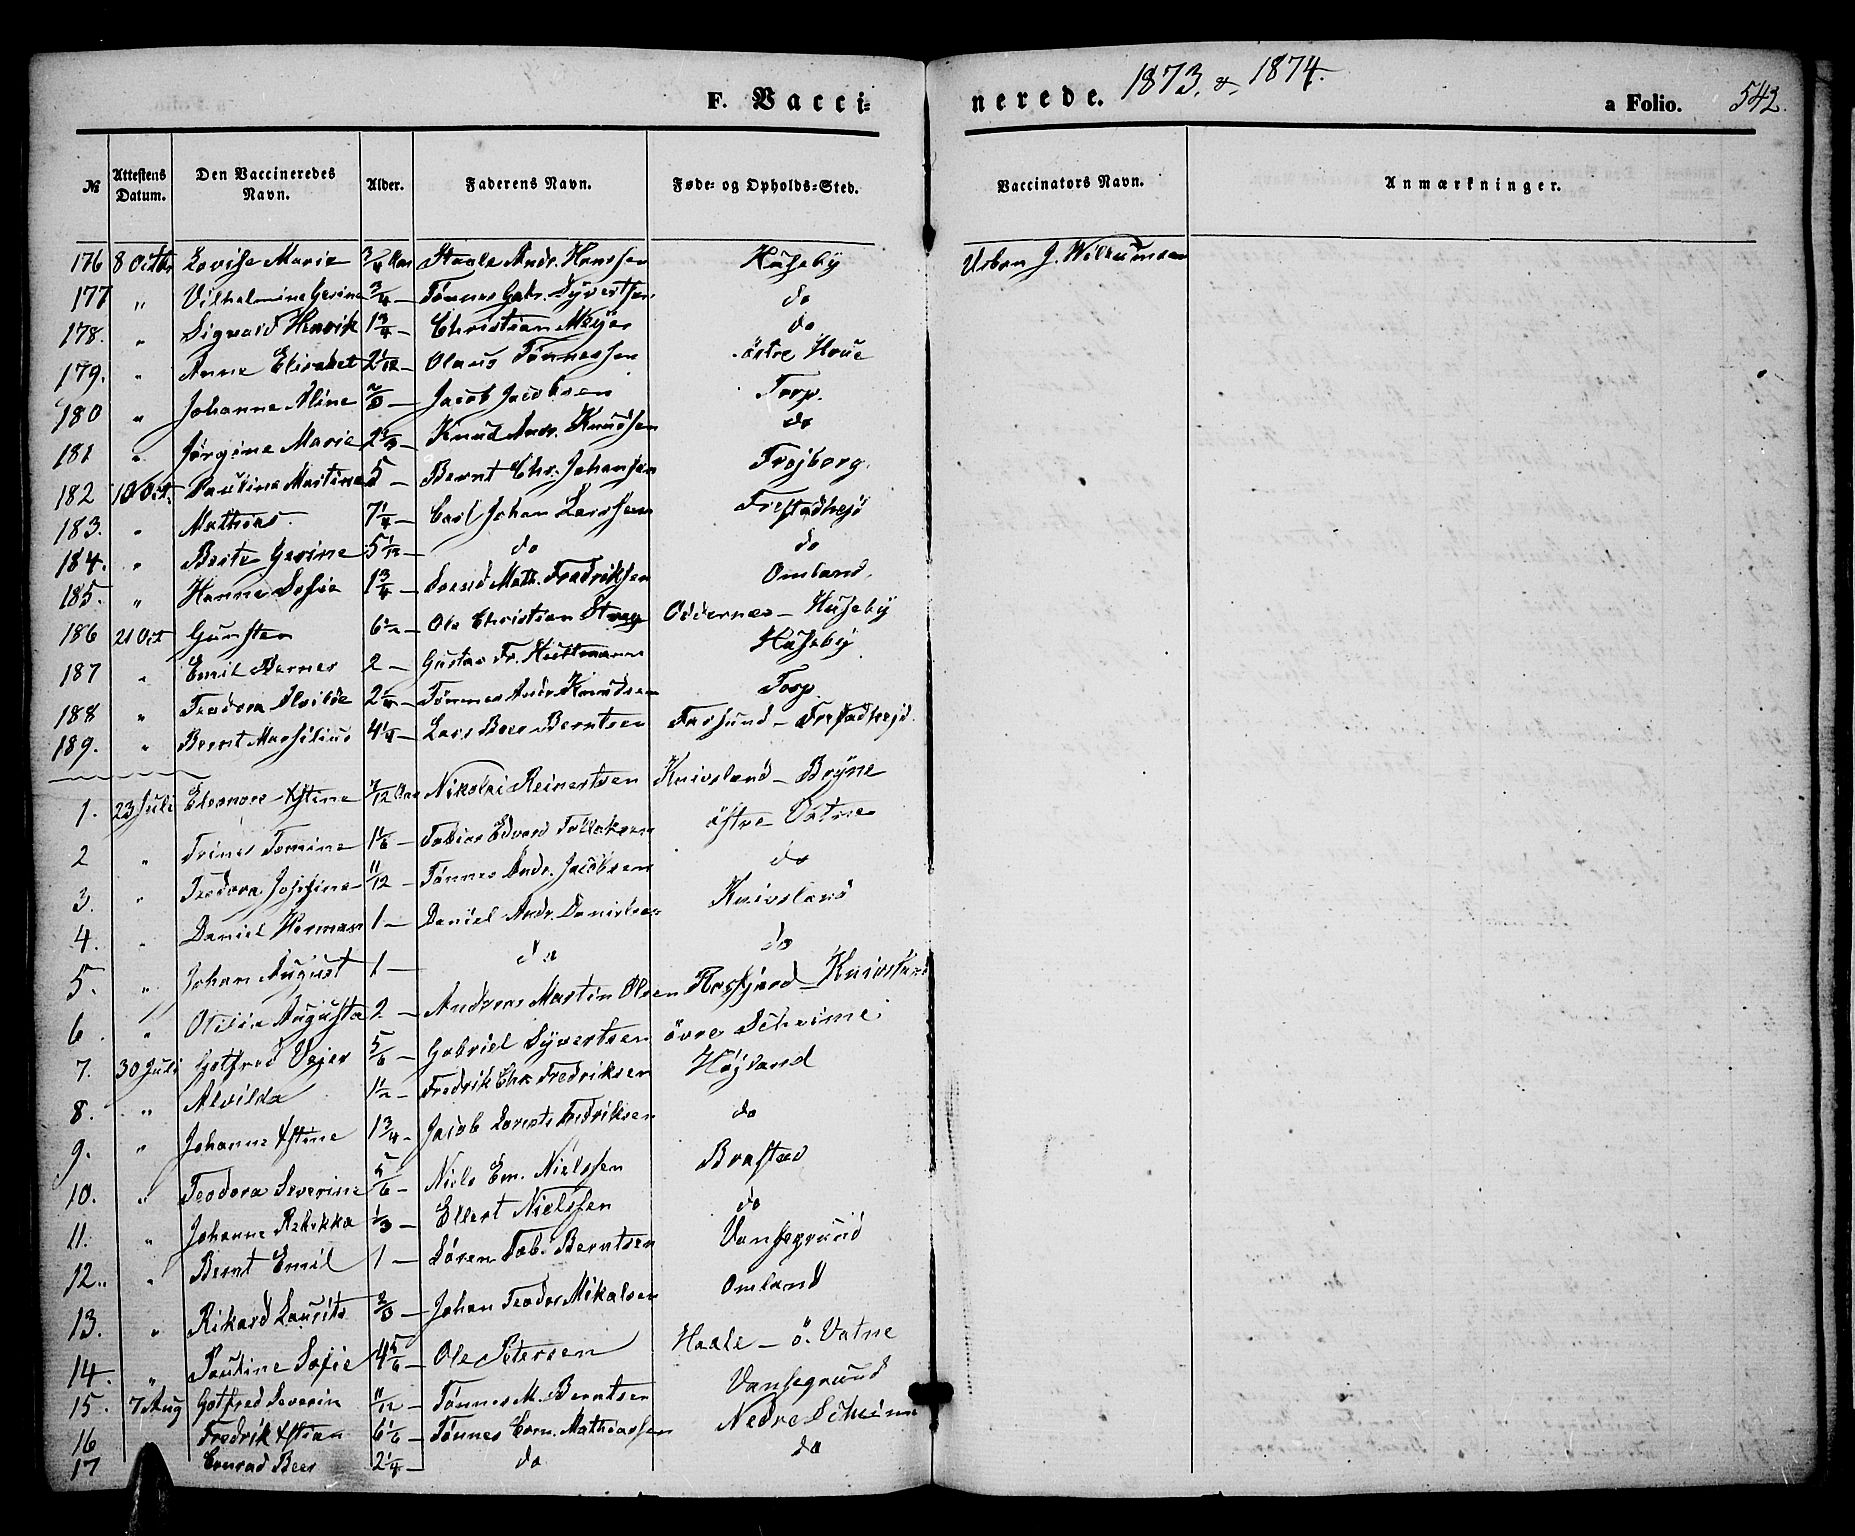 F. Vacci- nerede. 1873. & 1874. a Folio. 542.
№ Attestens Datum. Den Vaccineredes Navn. Alder. Faderens Navn. Føde- og Opholds-Sted. Vaccinators Navn. Anmærkninger.
176 8 Octbr Lovise Marie 3/4 Aar Staale Andr. Hanssen Huseby Urban J.
177 " Vilhelmine Gesine 3/4 — Tönnes Gabr. Syvertsen do
178. " Sigvald Henrik 1 3/4 — Christian Meyer do
179. " Anne Elisabet 2 1/12 — Olaus Tönnessen östre Houe
180 " Johanne Aline 2/3 — Jacob Jacobsen Torp.
181 " Jørgine Marie 2 1/3 — Knud Andr. Knudsen do
182 10 Oct. Pauline Martine 5 — Bernt Chr. Johansen Trojborg.
183. " Mathias. 7 1/4 — Carl Johan Larssen Frestadhejd
184. " Berte Gesine 5 1/12 — do do
185. " Hanne Sofie 1 3/4 — Math. Fredriksen Omland.
186 21 Oct Gunsten 6 1/2 — Ole Christian Stray Oddernes — Huseby
187 " Emil Bernes 2 — Gustav Fr. Huseby
188 " Teodora Alvilde 2 1/4 — Tönnes Andr. Knudsen Torp
189. " Bernt Marsilius 4 1/4 — Lars Beer Berntsen Farsund — Frestadhejd.
1. 23 Juli Eleonore Xstine 7/12 Aar Nikolai Reinertsen Knivsland — Bryne
2 " Trine Tomine 1 1/6 — Tobias Edvard Tollaksen östre Vatne
3. " Teodora Josefine 11/12 — Tönnes Andr. Jacobsen do
4. " Daniel Herman 1 — Daniel Andr. Danielsen Knivsland
5. " Johan August 1 — do do
6. " Otilie Augusta 2 — Andreas Martin Olsen Rosfjord — Knivsland
7. 30 Juli Gotfred Vejer 5/6 — Gabriel Syvertsen övre Scheime
8. " Alvilda 1 1/2 — Fredrik Chr. Fredriksen Højland
9. " Johanne Xstine 1 3/4 — Jacob Lorents Fredriksen do
10. " Teodora Severine 5/6 — Niels Em. Nielssen Brastad
11. " Johanne Rebekka 1/3 — Ellert Nielssen do
12. " Bernt Emil 1 — Sören Tob. Berntsen Vansegrund
13. " Rikard Laurits 2/3 — Johan Teodor Mikalsen Omland
14. " Pauline Sofie 4 5/6 — Ole Petersen — ö. Vatne
15. 7 Aug Gotfred Severin 11/12 — Tönnes M. Berntsen Vansegrund
16 Fredrik Xstian 6 1/6 — Tönnes Corn. Mathiassen Nedre Scheime
17 Conrad Beer 2 1/4 — do do